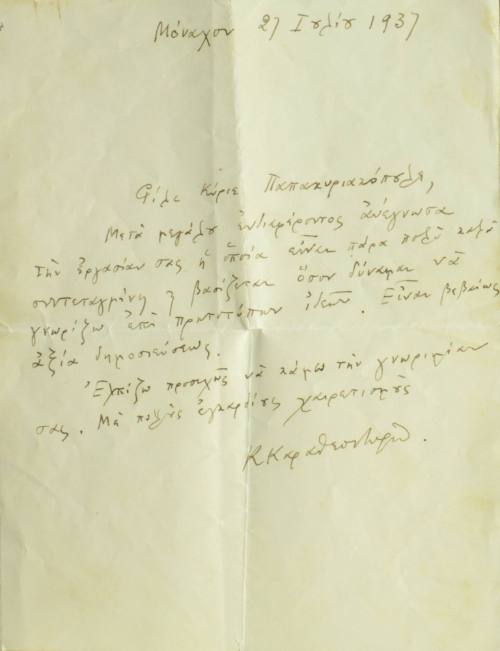 Μόναχον 27 Ἰουλίου 1937
Φίλε Κύριε Παπακυριακόπουλε,
Μετὰ μεγάλου ἐνδιαφέροντος ἀνέγνωσα
τὴν ἐργασίαν σας ἡ ὁποία εἶναι πάρα πολὺ καλὰ
συντεταγμένη ἢ βασίζεται ὅσον δύναμαι νὰ
γνωρίζω ἐπὶ πρωτοτύπων ἰδεῶν. Εἶναι βεβαίως
ἀξία δημοσιεύσεως.
Ἐλπίζω προσεχῶς νὰ κάμω τὴν γνωριμίαν
σας. Μὲ πολλοὺς ἐγκαρδίους χαιρετισμοὺς
Κ Καραθεοδωρῆ.